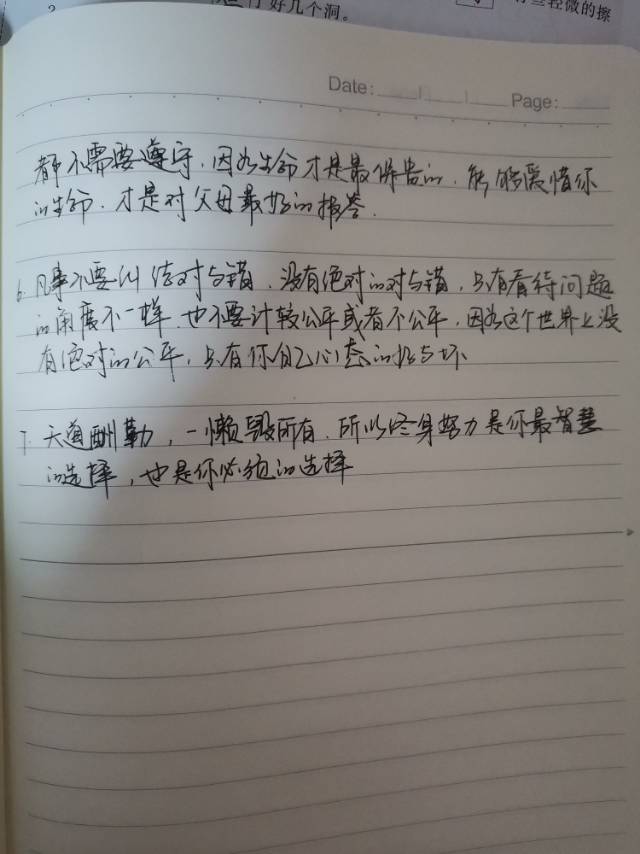 好几个洞。
有些轻微的擦
Date: Page:
都不需要遵守，因为生命才是最保贵的，能够爱惜你
的生命，才是对父母最好的报答．
6. 凡事不要纠结对与错，没有绝对的对与错，只有看待问题
的角度不一样，也不要计较公平或者不公平，因为这个世界上没
有绝对的公平，只有你自己心态的好与坏
7. 天道酬勤，一懒毁所有，所以终身努力是你最智慧
的选择，也是你必须的选择